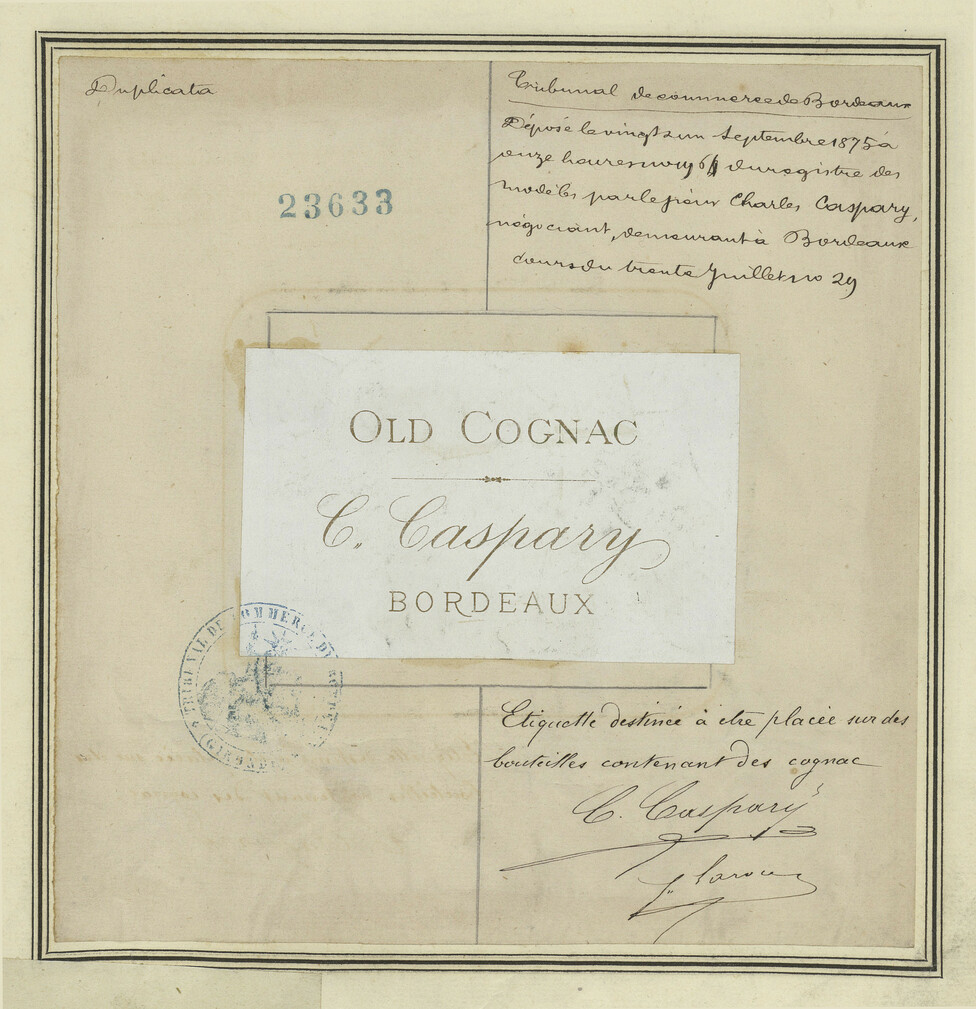 Duplicata
23633
Tribunal de commerce de Bordeaux
Déposé le vingt un Septembre 1875 à
onze heures du registre des
modèles par le sieur Charles Caspary,
négociant, demeurant à Bordeaux
cours du trente Juillet no 29
OLD COGNAC
C. Caspary
BORDEAUX
TRIBUNAL DE COMMERCE DE BORDEAUX
(GIRONDE)
Etiquette destinée à etre placée sur des
bouteilles contenant des cognac
C. Caspary